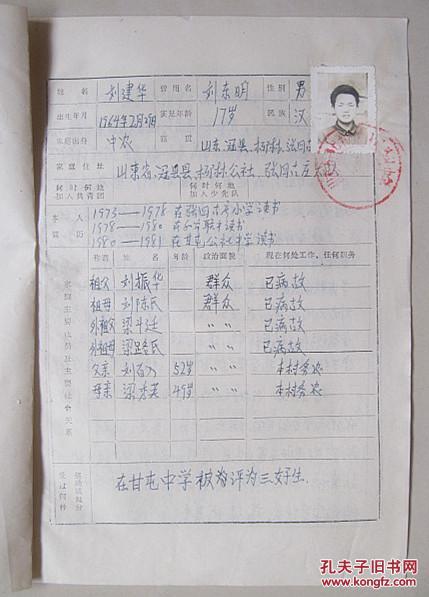 姓名 刘建华 曾用名 刘东明 性别 男
出生年月 1964年2月 实足年龄 17岁 民族 汉
家庭出身 中农 籍贯 山东 冠县
家庭住址 山东省 冠县 公社 张
何时何地加入共青团 何时何地加入少先队
本人简历 1973——1978 在张 小学读书
1978——1980 在 联中读书
1980——1981 在甘屯公社中学读书
称谓 姓名 年龄 政治面貌 现在何处工作、任何职务
家庭主要成员及主要社会关系
祖父 刘振华 群众 已病故
祖母 刘陈氏 群众 已病故
外祖父 梁斗廷 〃 〃 已病故
外祖母 梁 氏 〃 〃 已病故
父亲 刘 52岁 〃 〃 本村务农
母亲 梁秀英 49岁 〃 〃 本村务农
受过何种奖励或处分 在甘屯中学被 评为三好生.
孔夫子旧书网
www.kongfz.com